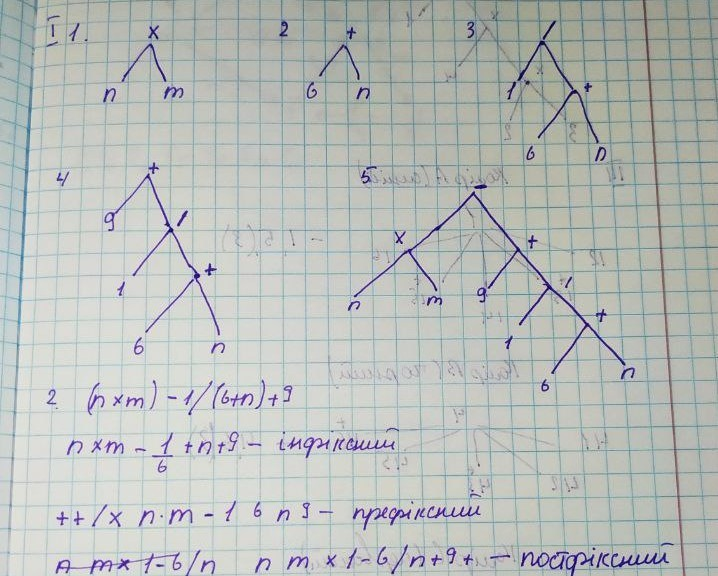 I 1. x 2 + 3 /
n m 6 n 1 +
6 n
4 + 5 -
9 / x +
1 + n m 9 /
6 n 1 +
6 n
2. (n x m) - 1/(6+n)+9
n x m - 1/6 + n + 9 - інфіксний
+ + / x n · m - 1 6 n 9 - префіксний
n m x 1 - 6 / n n m x 1 - 6 / n + 9 + - постфіксний